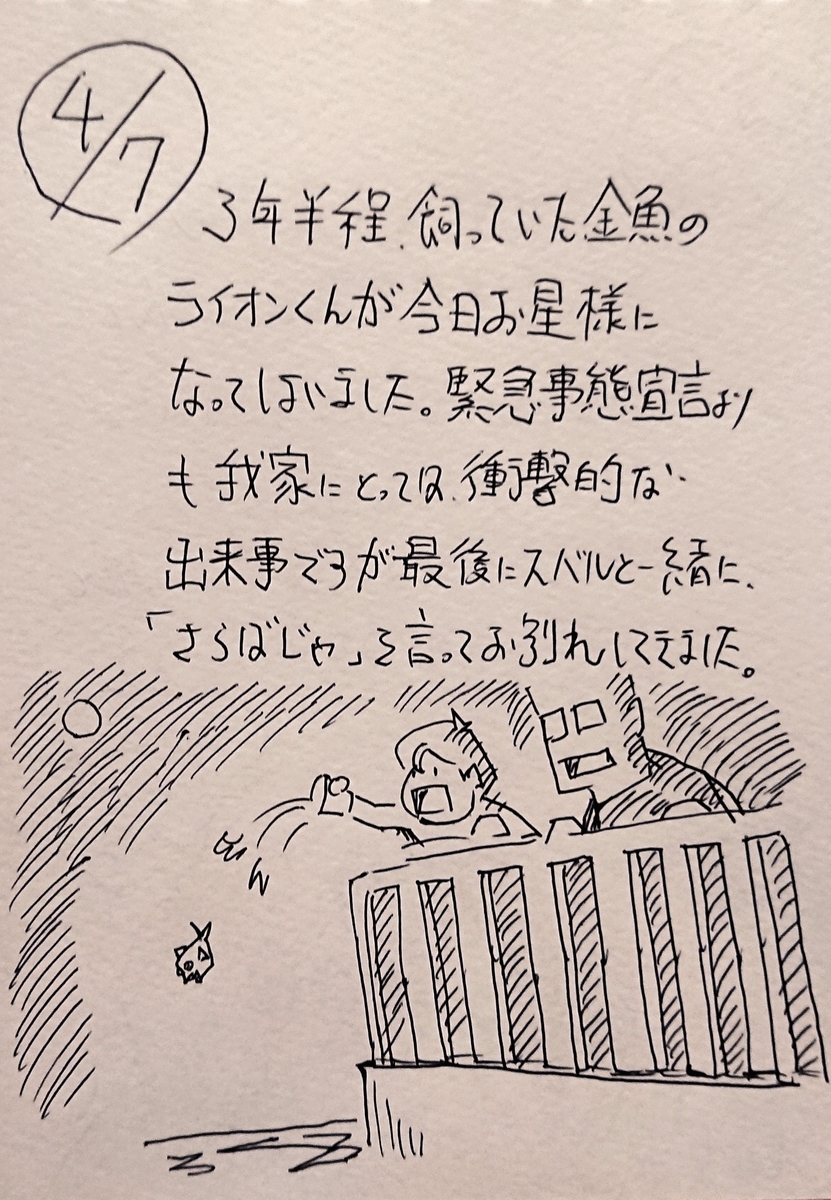 4/7
3年半程、飼っていた金魚の
ライオンくんが今日お星様に
なってしまいました。緊急事態宣言より
も我家にとっては、衝撃的な
出来事ですが最後にスバルと一緒に、
「さらばじゃ」を言ってお別れしてきました。